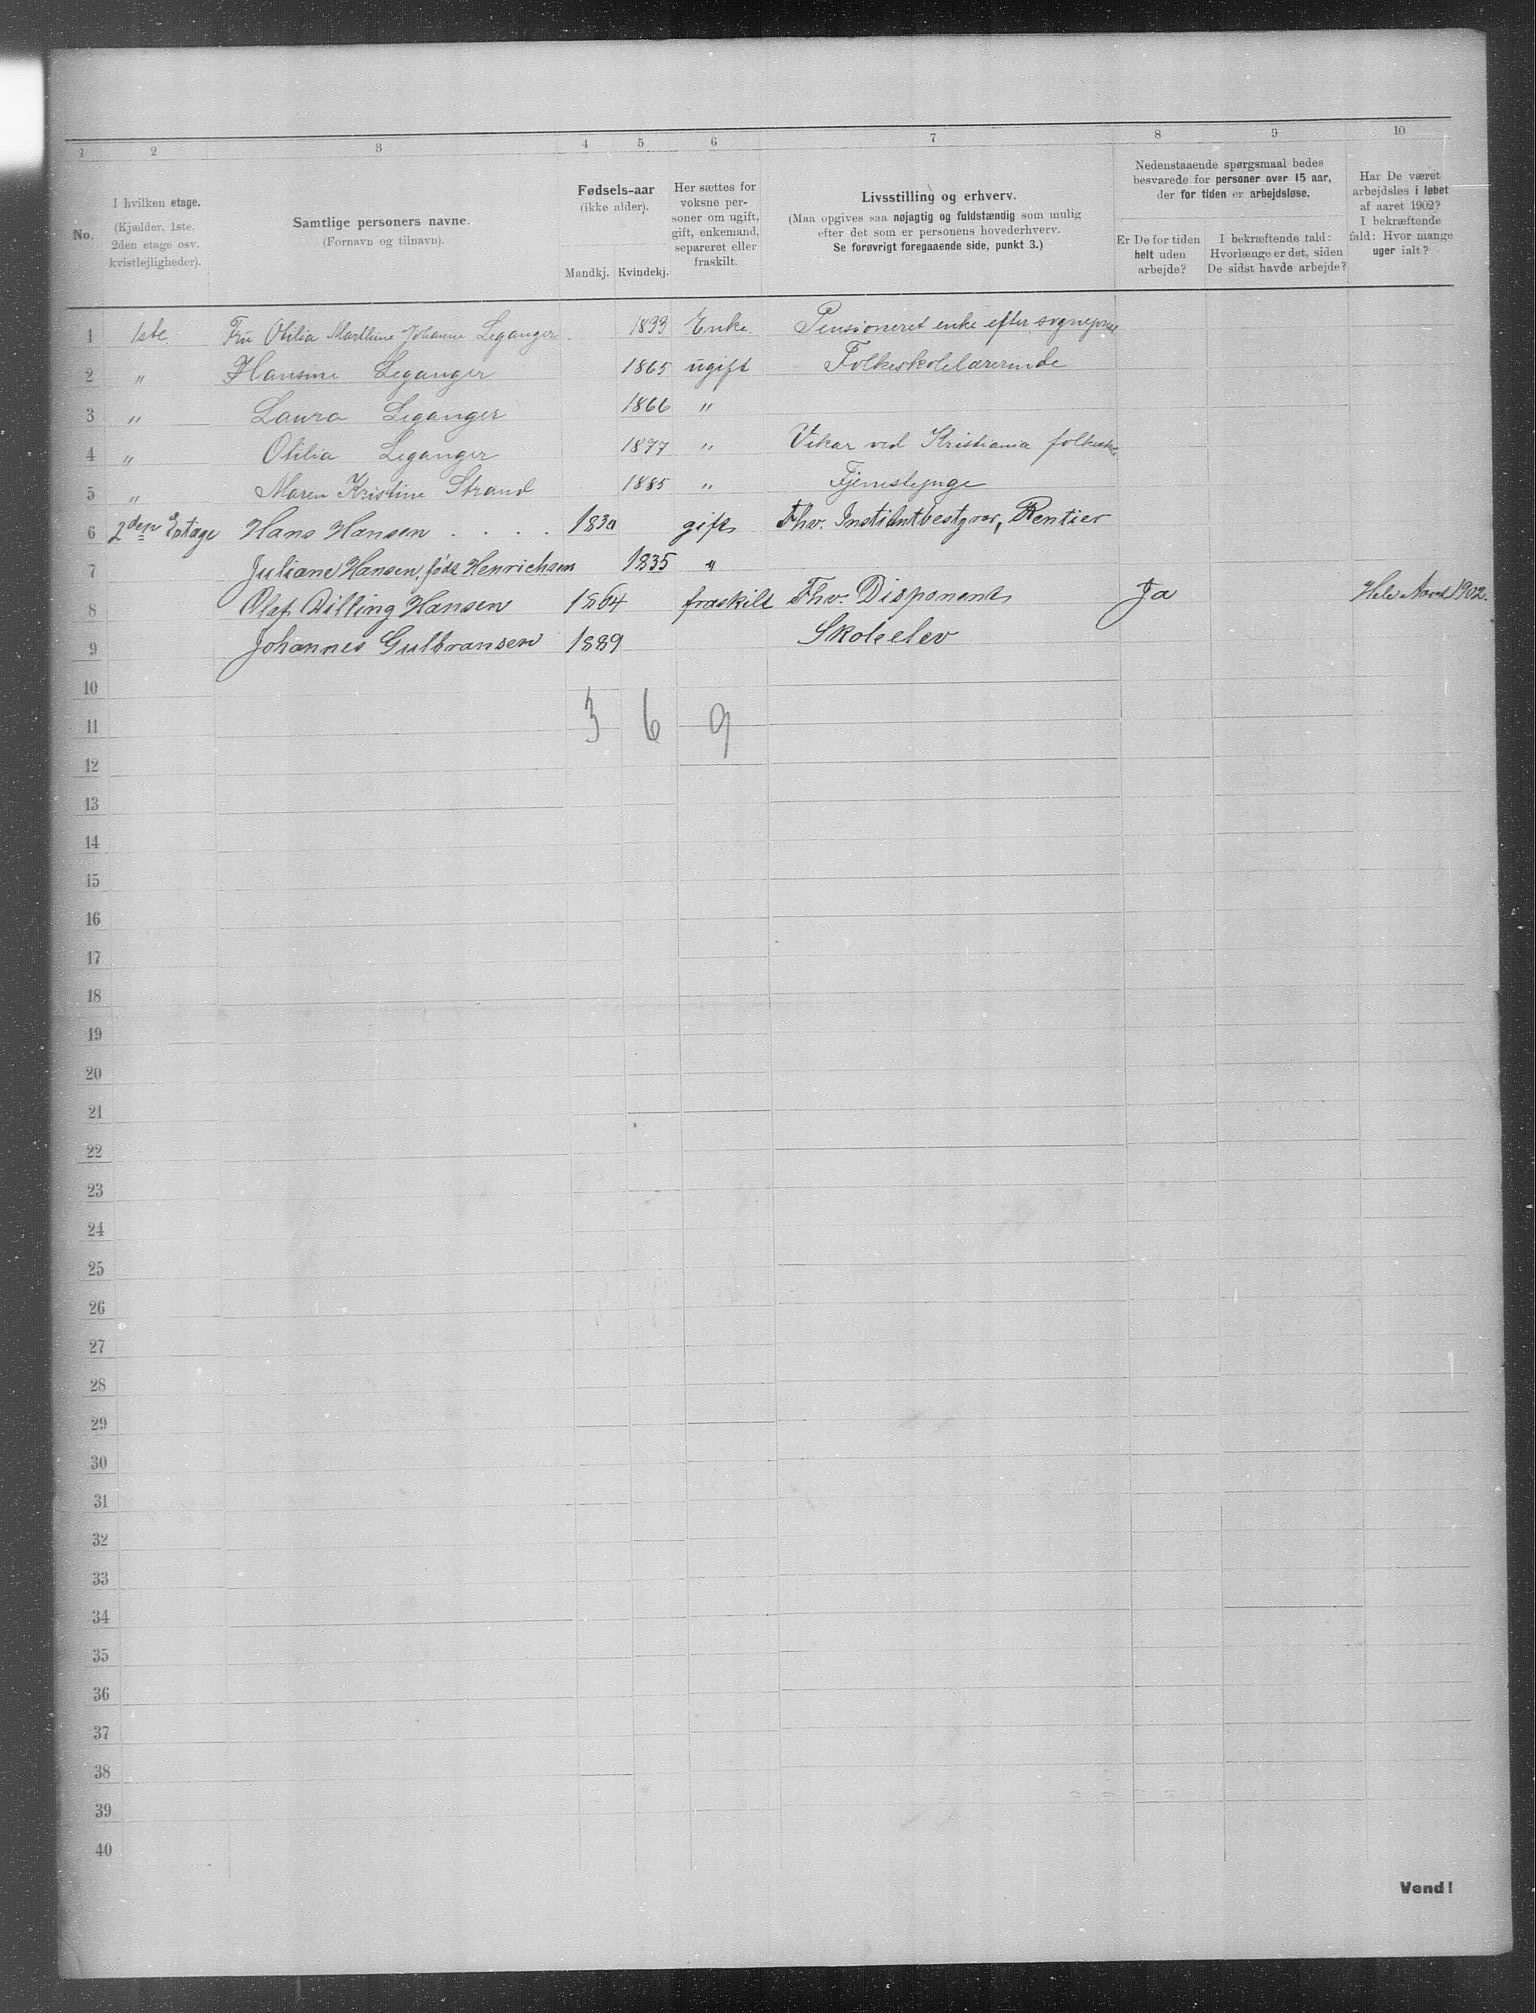 1 2 3 4 5 6 7 8 9 10
No.
I hvilken etage.
(Kjælder, 1ste.
2den etage osv.
kvistlejligheder).
Samtlige personers navne.
(Fornavn og tilnavn).
Fødsels-aar
(ikke alder).
Mandkj. Kvindekj.
Her sættes for
voksne per-
soner om ugift,
gift, enkemand,
separeret eller
fraskilt.
Livsstilling og erhverv.
(Maa opgives saa nøjagtig og fuldstændig som mulig
efter det som er personens hovederhverv.
Se forøvrigt foregaaende side, punkt 3.)
Nedenstaaende spørgsmaal bedes
besvarede for personer over 15 aar,
der for tiden er arbejdsløse.
Er De for tiden
helt uden
arbejde?
I bekræftende fald:
Hvorlænge er det, siden
De sidst havde arbejde?
Har De været
arbejdsløs i løbet
af aaret 1902?
I bekræftende
fald: Hvor mange
uger ialt?
1 1ste Fru Otilia Marthine Johanne Leganger 1833 Enke Pensioneret enke efter sogneprest
2 " Hansine Leganger 1865 ugift Folkeskolelærerinde
3 " Laura Leganger 1866 "
4 " Otilia Leganger 1877 " Vikar ved Kristiania folkesk.
5 " Maren Kristine Strand 1885 " Tjenestepige
6 2den Etage Hans Hansen . . . . 1830 gift Fhv. Institutbestyrer, Rentier
7 Juliane Hansen, født Henrichsen 1835 "
8 Olaf Dilling Hansen 1864 fraskilt Fhv. Disponent Ja Hele Aaret 1902.
9 Johannes Gulbransen 1889 Skoleelev
10
11 3 6 9
12
13
14
15
16
17
18
19
20
21
22
23
24
25
26
27
28
29
30
31
32
33
34
35
36
37
38
39
40
Vend!